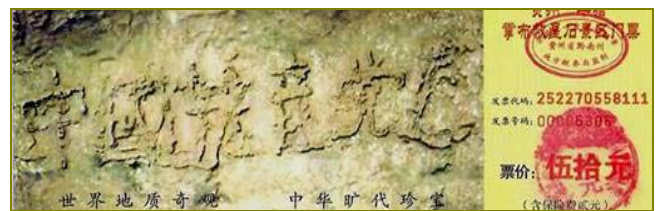 中國共产党亡
世界地质奇观 中华旷代珍宝
掌布藏星石景区门票
贵州省黔南州
地方税务局监制
发票代码：252270558111
发票号码：00006306
票价：伍拾元
（含保险费贰元）